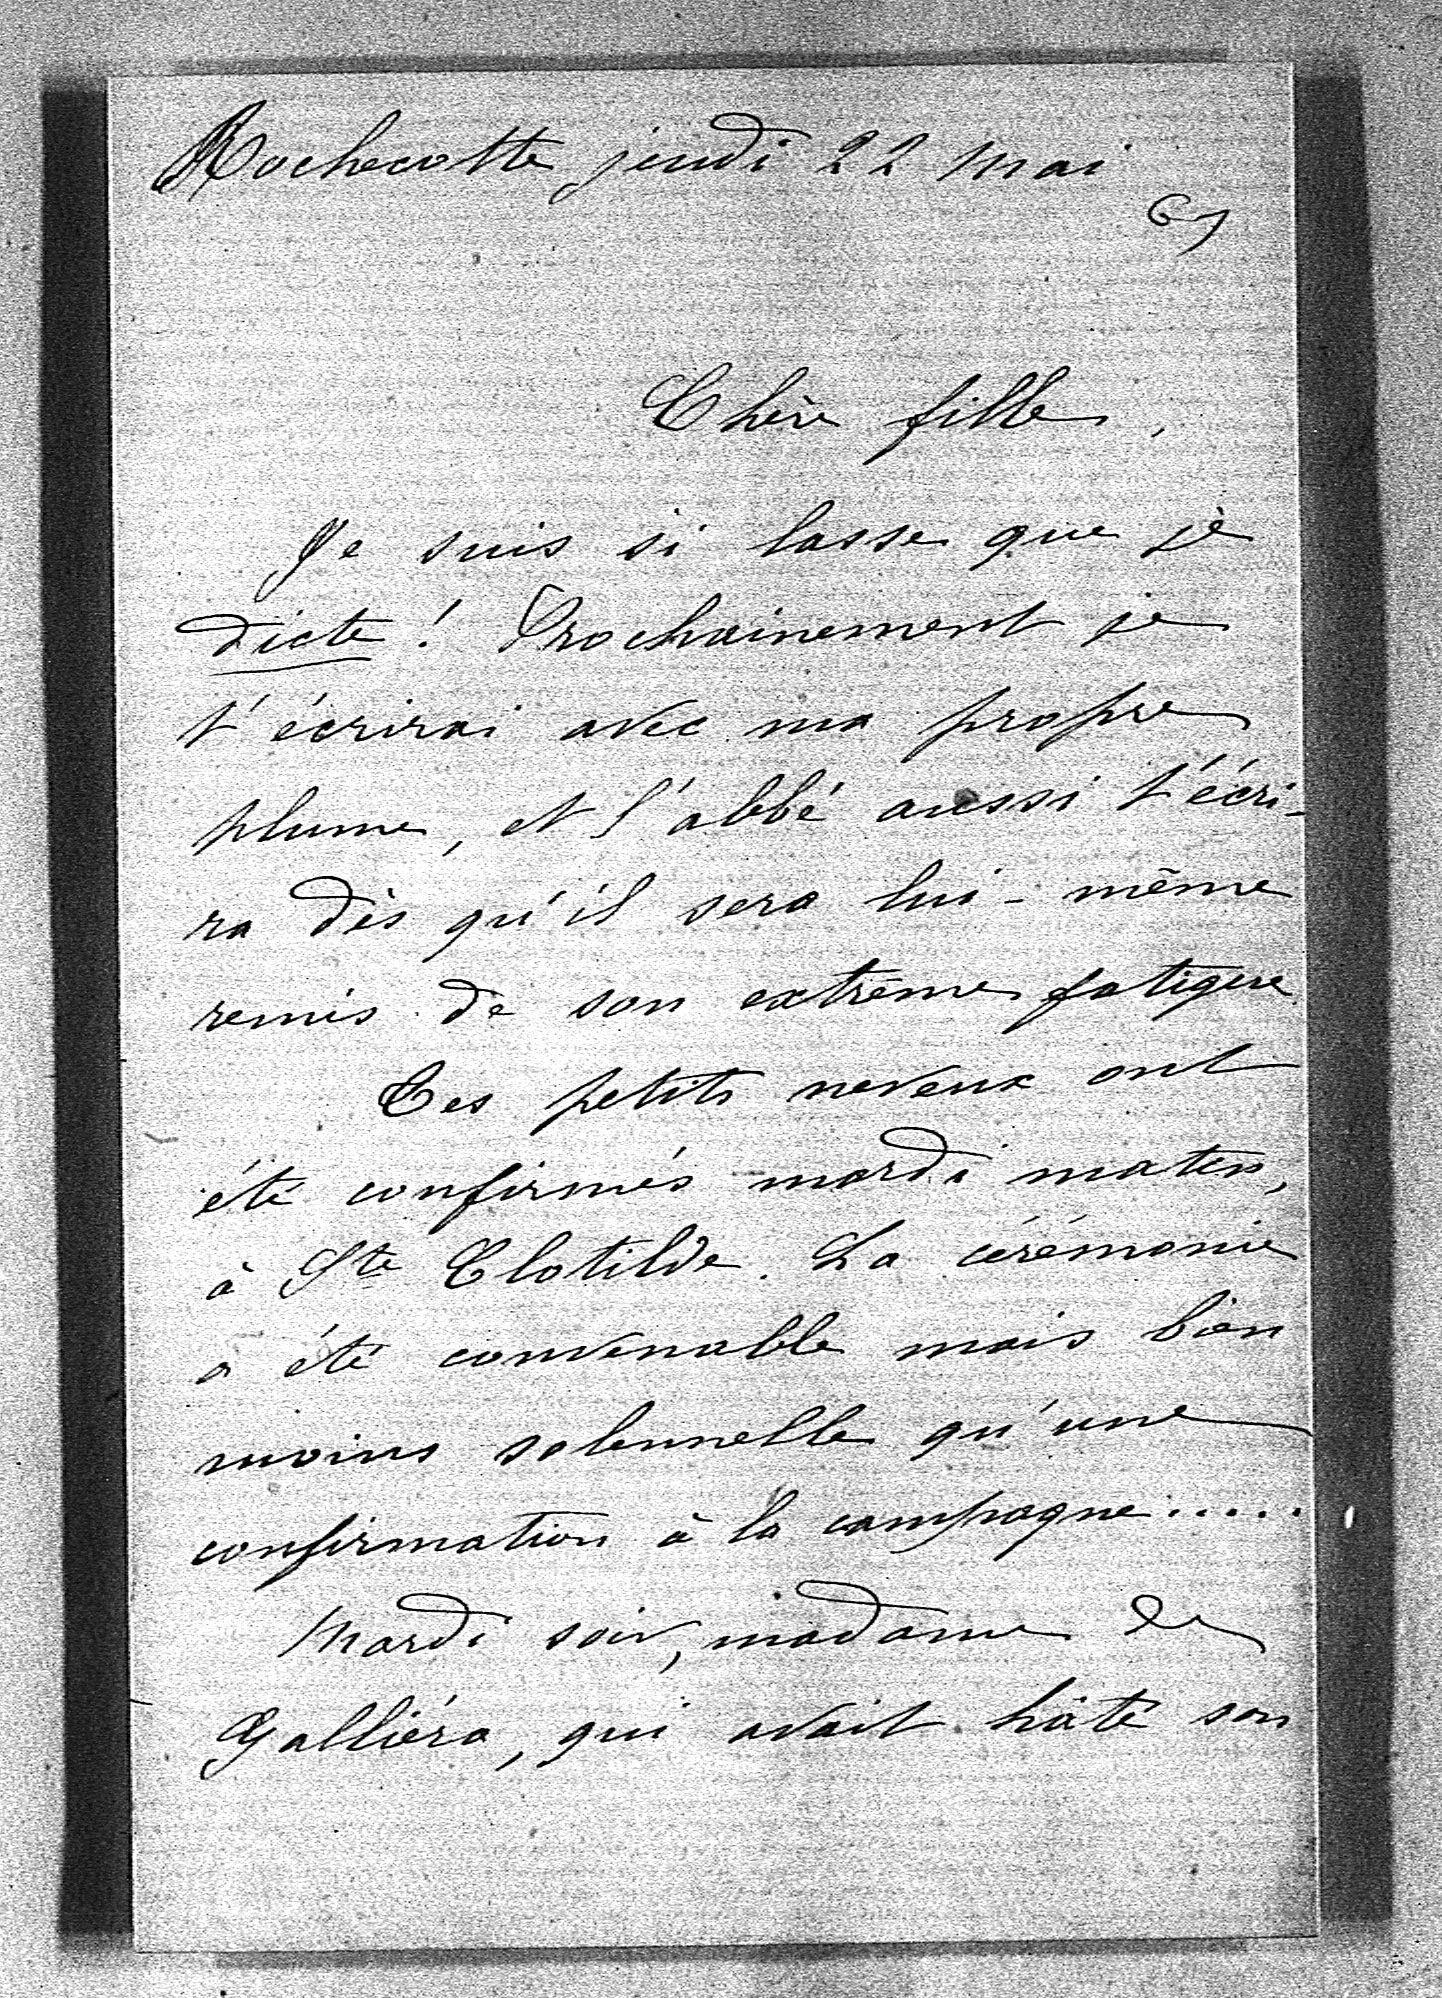 Rochecotte jeudi 22 mai
67
Chère fille,
Je suis si lasse que je
dicte ! Prochainement je
t'écrirai avec ma propre
plume, et l'abbé aussi t'écri-
ra dès qu'il sera lui-même
remis de son extrême fatigue
Tes petits neveux ont
été confirmés mardi matin,
à Ste Clotilde. La cérémonie
a été convenable mais bien
moins solennelle qu'une
confirmation à la campagne.....
Mardi soir, madame de
Galliéra, qui avait hâté son